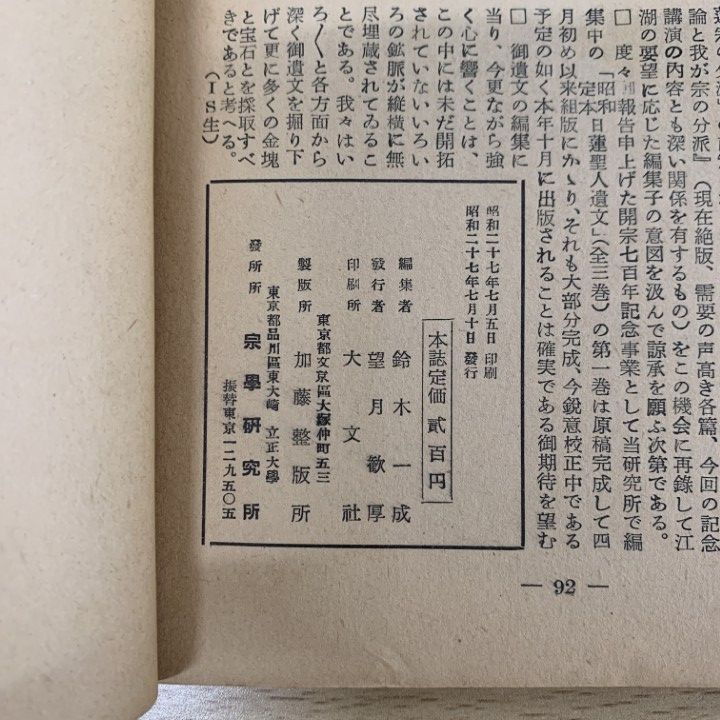 論と我が宗の分派』(現在絶版、需要の声高き各篇、今回の記念
講演の内容とも深い関係を有するもの)をこの機会に再錄して江
湖の要望に応じた編集子の意図を汲んで諒承を願ふ次第である。
□ 度々報告申上げた開宗七百年記念事業として当研究所で編
集中の「昭和定本日蓮聖人遺文」(全三巻)の第一巻は原稿完成して四
月初め以来組版にかゝり、それも大部分完成、今鋭意校正中である
予定の如く本年十月に出版されることは確実である御期待を望む
□ 御遺文の編集に
当り、今更ながら強
く心に響くことは、
この中には未だ開拓
されていないいろい
ろの鉱脈が縦横に無
尽埋蔵されてゐるこ
とである。我々はい
ろ〱と各方面から
深く御遺文を掘り下
げて更に多くの金塊
と宝石とを採取すべ
きであると考へる。
(IS生)
昭和二十七年七月五日 印刷
昭和二十七年七月十日 發行
本誌定価 貳百円
編集者 鈴木一成
發行者 望月歡厚
印刷所 大文社
東京都文京區大塚仲町五三
製版所 加藤整版所
東京都品川區東大崎 立正大學
發所所 宗學研究所
振替東京一二九五〇五
— 92 —